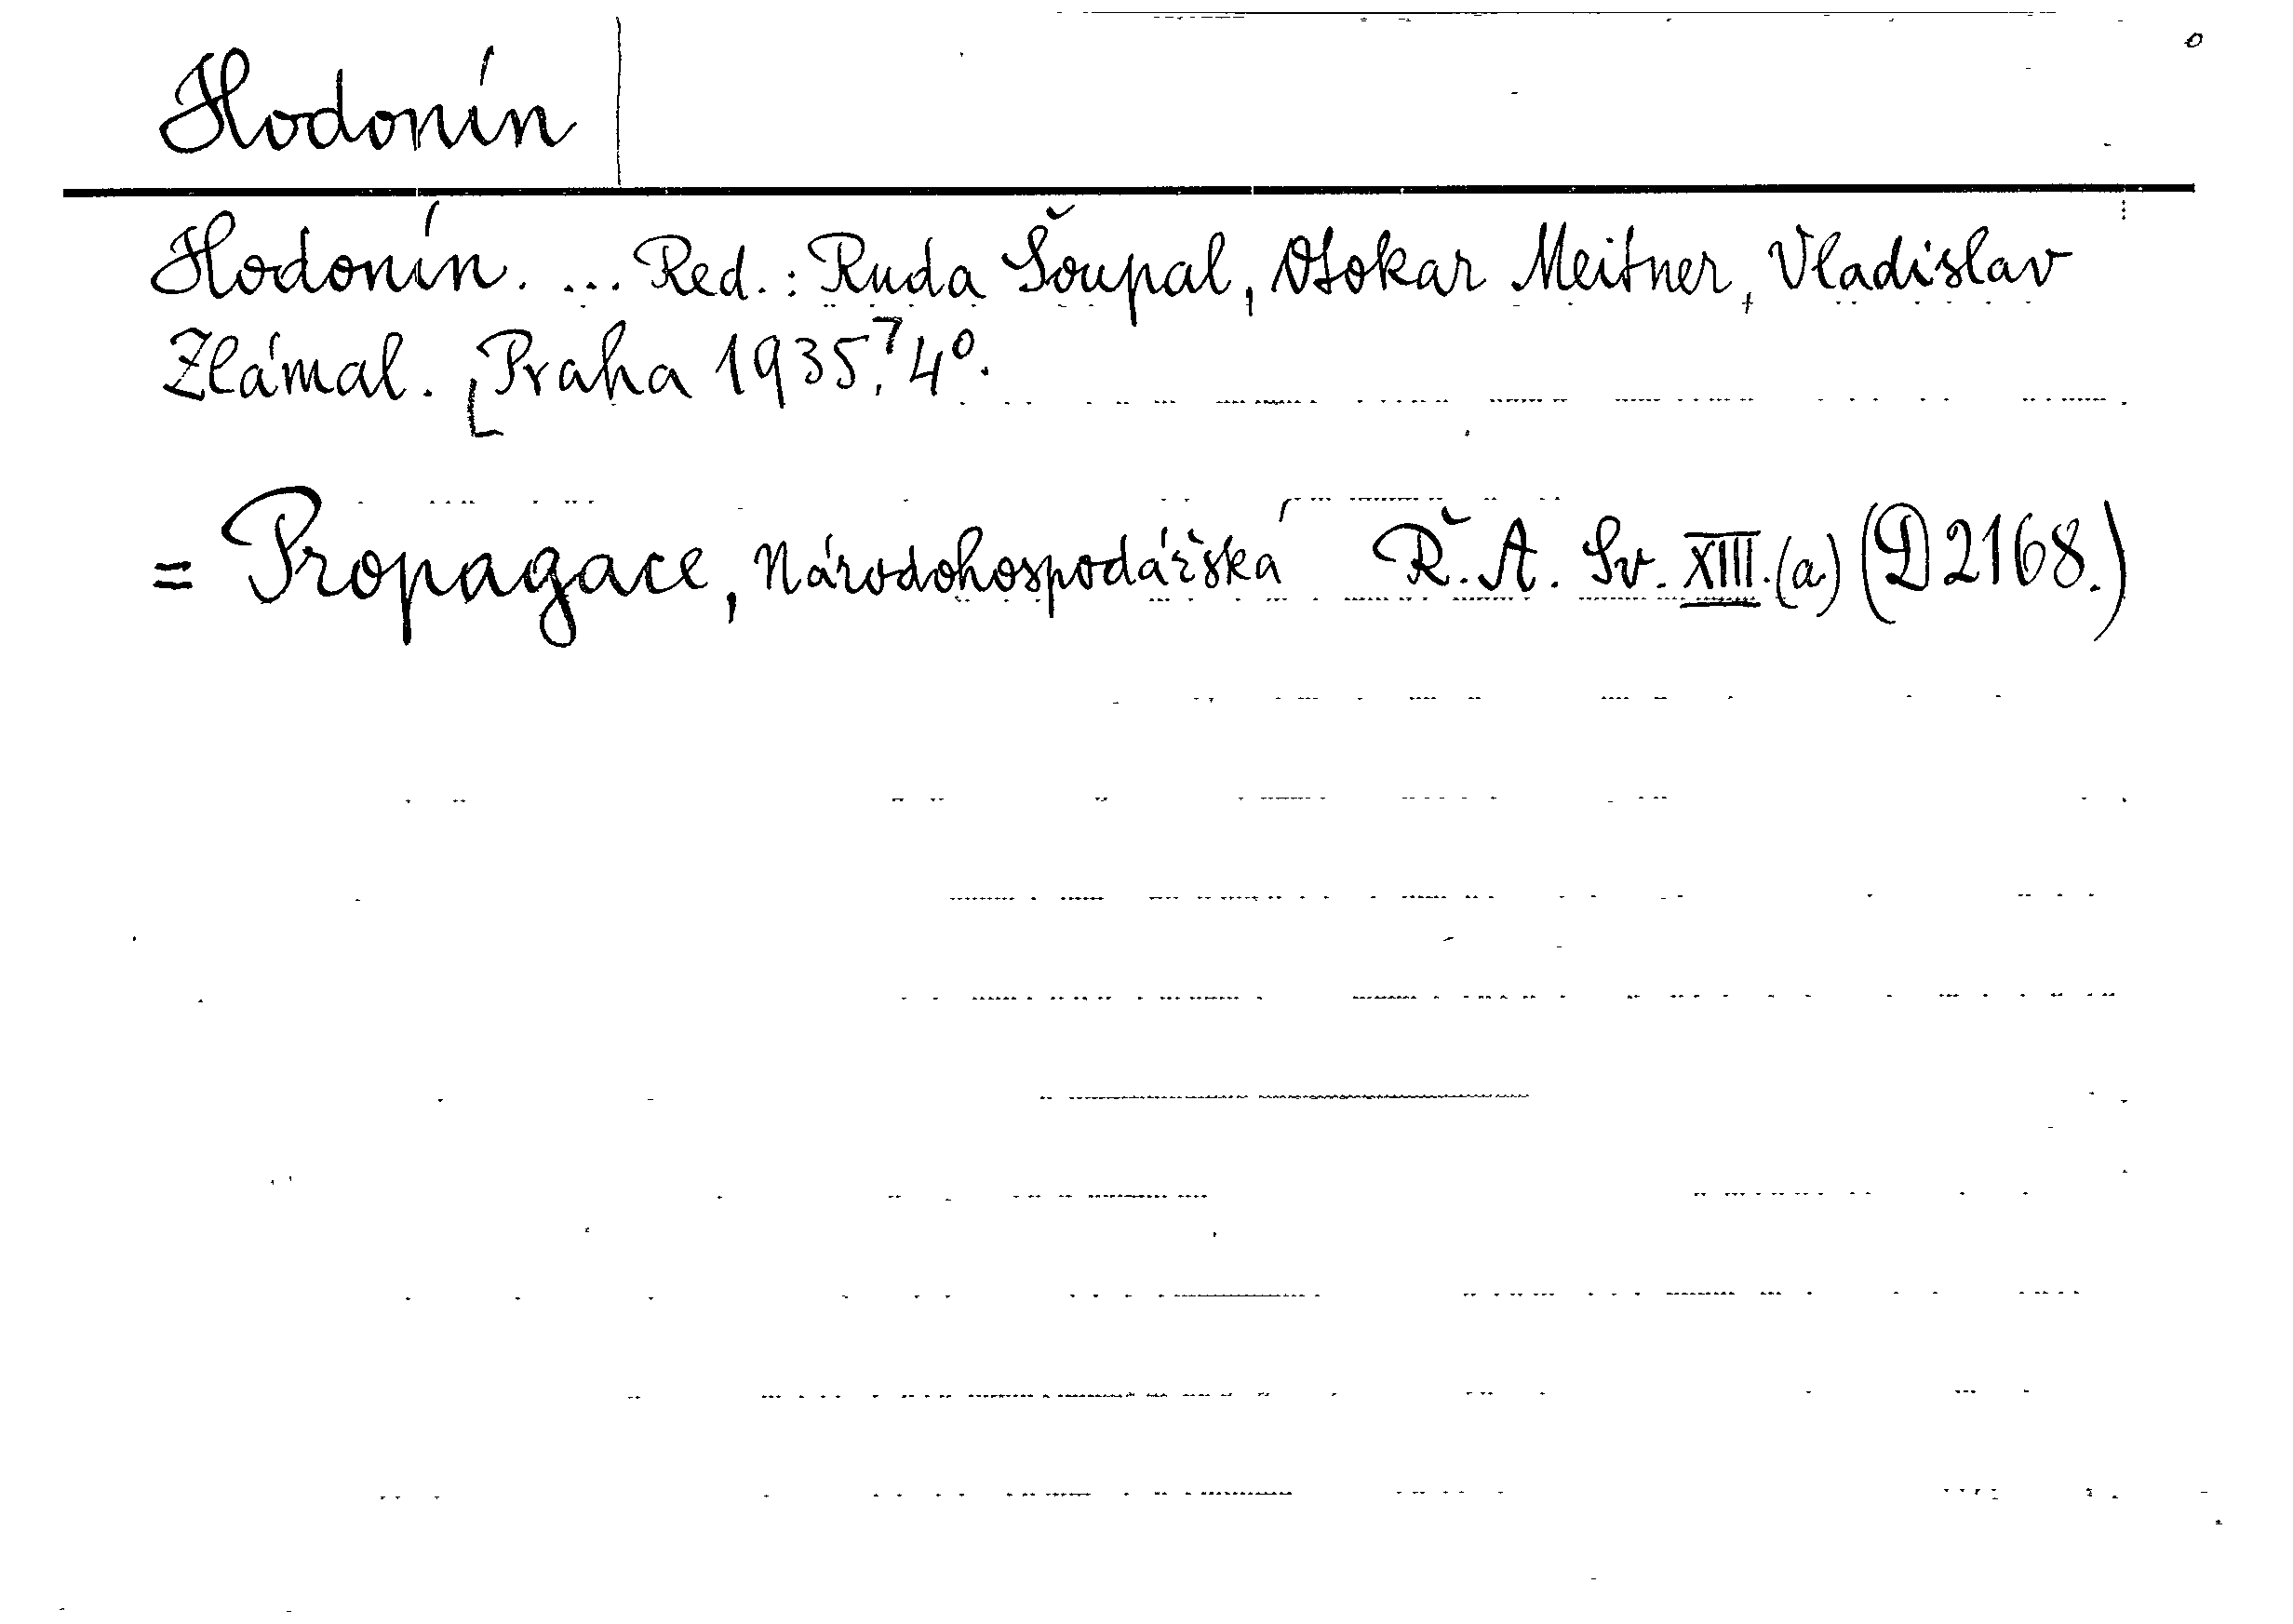 Hodonín
Hodonín. ... Red.: Ruda Šoupal, Otokar Meitner, Vladislav
Zlámal. [Praha 1935.] 4°.
= Propagace, Národohospodářská Ř. A. Sv. XIII. (a) (D 2168.)